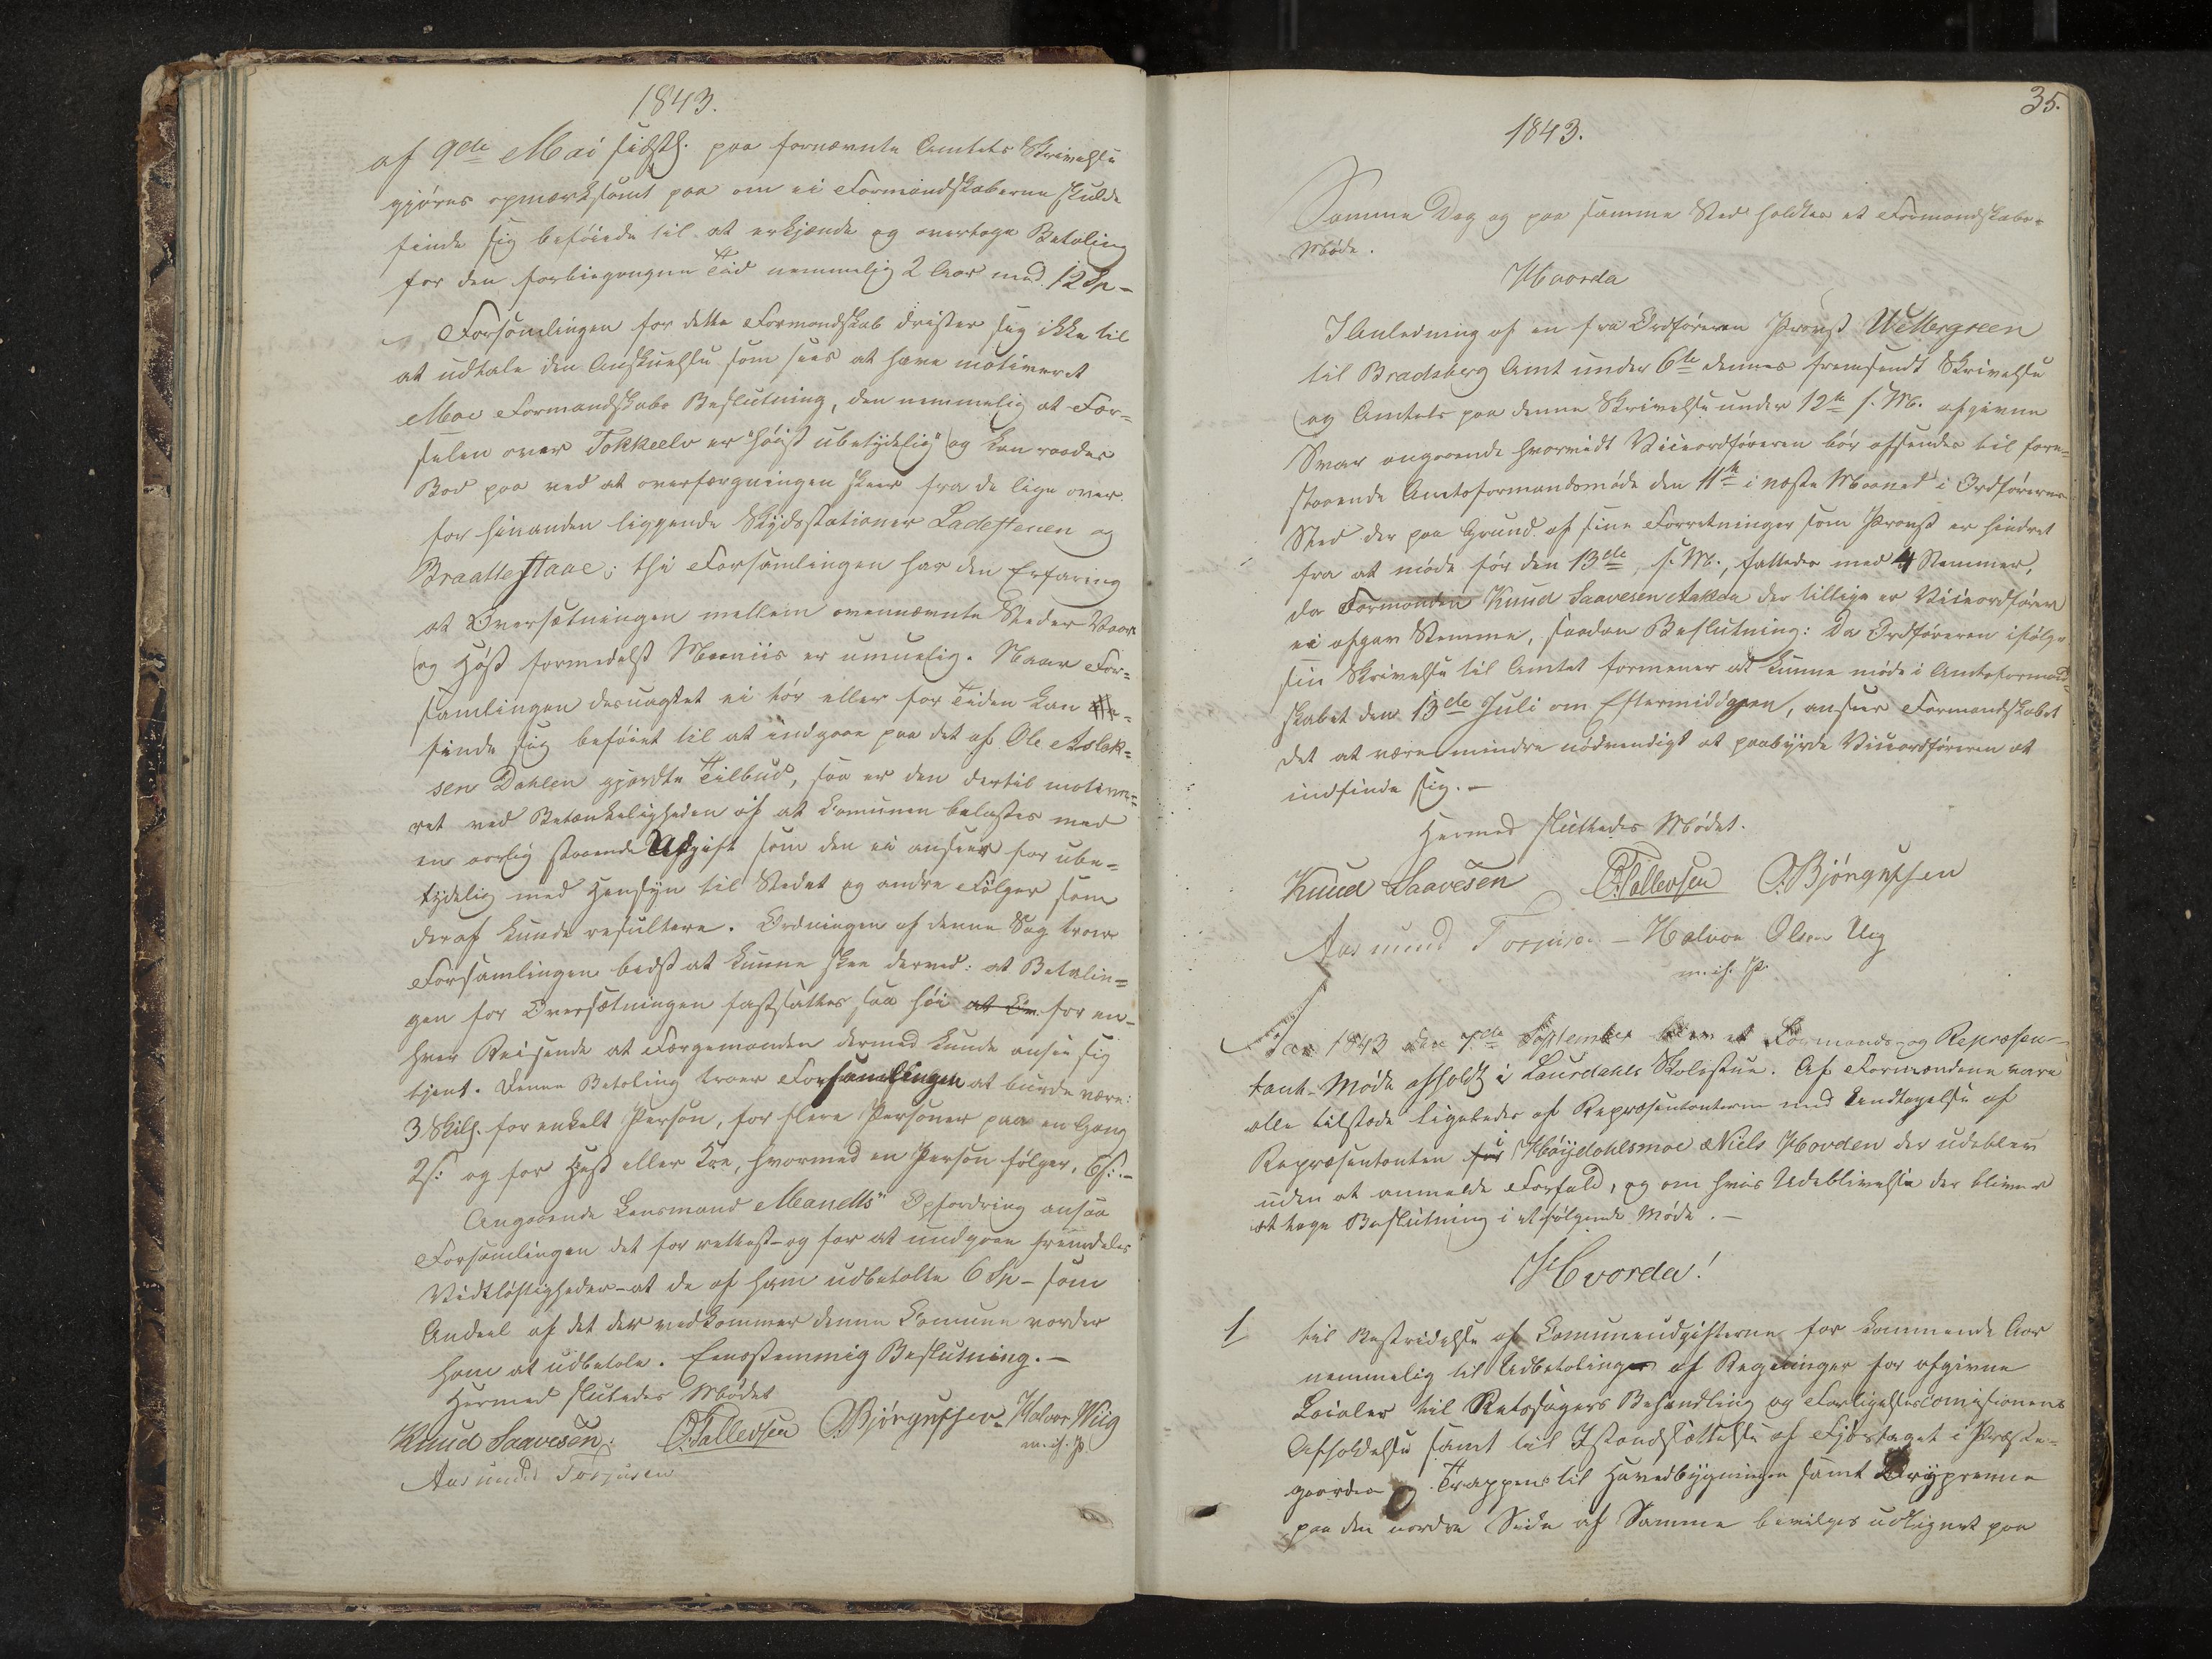 1843.
af 9de Mai sidstl. paa fornævnte Amtets Skrivelse
gjøres opmærksomt paa om ei Formandskaberne skulde
finde sig beføiede til at erkjende og overtage Betaling
for den forbiegangne Tid nemmelig 2 Aar med 12 Sp-
Forsamlingen for dette Formandskab drister sig ikke til
at udtale den Anskuelse som sees at have motiveret
Moe Formandskabs Beslutning, den nemmelig at For=
selen over Tokkeelv er "høist ubetydelig" og kan raades
Bod paa ved at overfærgningen skeer fra de lige over
for hinanden liggende Skydsstationer Ladestenen og
Braattestaae; thi Forsamlingen har den Erfaring
at Oversætningen mellem ovennævnte Steder Vaar
og Høst formedelst Meeniis er umuelig. Naar For=
samlingen desuagtet ei tør eller for Tiden kan
finde sig beføiet til at indgaae paa det af Ole Aslak=
sen Dahlen gjordte Tilbud, saa er den dertil motive=
ret ved Betænkeligheden af at Comunen belastes med
en aarlig staaende Udgift som den ei ansees for ube=
tydelig med Hensyn til Stedet og andre Følger som
deraf kunde resultere. Ordningen af denne Sag troer
Forsamlingen bedst at kunne skee derved: at Betalin=
gen for Oversætningen fastsættes saa høi for en=
hver Reisende at Færgemanden dermed kunde ansee sig
tjent. Denne Betaling troer Forsamlingen at burde være:
3 Skill. for enkelt Person, for flere Personer paa en Gang
2s: og for Hest eller Koe, hvormed en Person følger, 6s:.-
Angaaende Lensmand Mandts Opfordring ansaa
Forsamlingen det for rettest - og for at undgaae fremdeles
Vidtløftigheder - at de af ham udbetalte 6 Sp- som
Andeel af det der vedkommer denne Comune vorder
ham at udbetale. Eenstemmig Beslutning.-
Hermed sluttedes Mødet
Knud Saavesen. O. Tallevsen O. Bjørgufsen Halvor Wiig
m. ih. P.
Aasmund Torjusen
35.
1843.
Samme Dag og paa samme Sted holdtes et Formandskabs=
Møde.
Hvorda
I Anledning af en fra Ordføreren Provst Wettergreen
til Bradsberg Amt under 6te dennes fremsendt Skrivelse
og Amtets paa denne Skrivelse under 12te s. M. afgivne
Svar angaaende hvorvidt Viceordføreren bør afsendes til fore=
staaende Amtsformandsmøde den 11te i næste Maaned i Ordførerens
Sted der paa Grund af sine Forretninger som Provst er hindret
fra at møde før den 13de, s. M., fattedes med 4 Stemmer,
da Formanden Knud Saavesen der tillige er Viceordfører
ei afgav Stemme, saadan Beslutning: Da Ordføreren ifølge
sin Skrivelse til Amtet formener at kunne møde i Amtsformand=
skabet den 13de Juli om Eftermiddagen, ansees Formandskabet
det at være mindre nødvendigt at paabyrde Viceordføreren at
indfinde sig.-
Hermed sluttedes Mødet.
Knud Saavesen O. Tallevsen O. Bjørgufsen
Aasmund Torjusen - Halvor Olsen Viig
m. ih. P.
Aar 1843 den 7de September blev et Formands- og Repræsen-
tant-Møde afholdt i Laurdahls Skolestue. Af Formændene vare
alle tilstede ligeledes af Repræsentanterne med Undtagelse af
Repræsentanten i Høydahlsmoe Niels Hovden der udeblev
uden at anmelde Forfald, og om hvis Udeblivelse der bliver
at tage Beslutning i et følgende Møde.-
Hvorda!
1 til Bestridelse af Comuneudgifterne for kommende Aar
nemmelig til Udbetalinger af Regninger for afgivne
Localer til Retssagers Behandling og Forligelsescomisionens
Afholdelse samt til Istandsættelse af Fjøstaget i Præste=
gaarden og Trappen til Hovedbygningen samt
paa den nordre Side af Samme bevilges udlignet paa